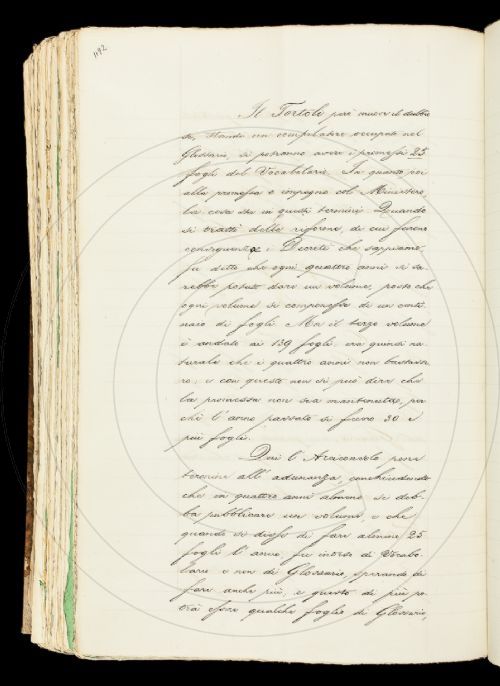 1192
Il Tortoli però muove il dubbio
se, stando un compilatore occupato nel
Glossario, si potranno avere i promessi 25
fogli del Vocabolario. In quanto poi
alla promessa e impegno col Ministero,
la cosa sta in questi termini. Quando
si trattò delle riforme, di cui furono
conseguenza i Decreti che sappiamo,
fu detto che ogni quattro anni si sa-
rebbe potuto dare un volume, posto che
ogni volume si componesse di un centi-
naio di fogli. Ma il terzo volume
è andato ai 139 fogli, era quindi na-
turale che i quattro anni non bastasse-
ro, e con questo non si può dire che
la promessa non sia mantenuta, per-
chè l'anno passato si fecero 30 e
più fogli.
Dini l'Arciconsolo, pone
termine all'adunanza, conchiudendo
che in quattro anni almeno si deb-
ba pubblicare un volume, e che
quando si disse di fare almeno 25
fogli l'anno, fu inteso di Vocabo-
lario e non di Glossario, sperando di
fare anche più, e questo di più po-
trà essere qualche foglio di Glossario,